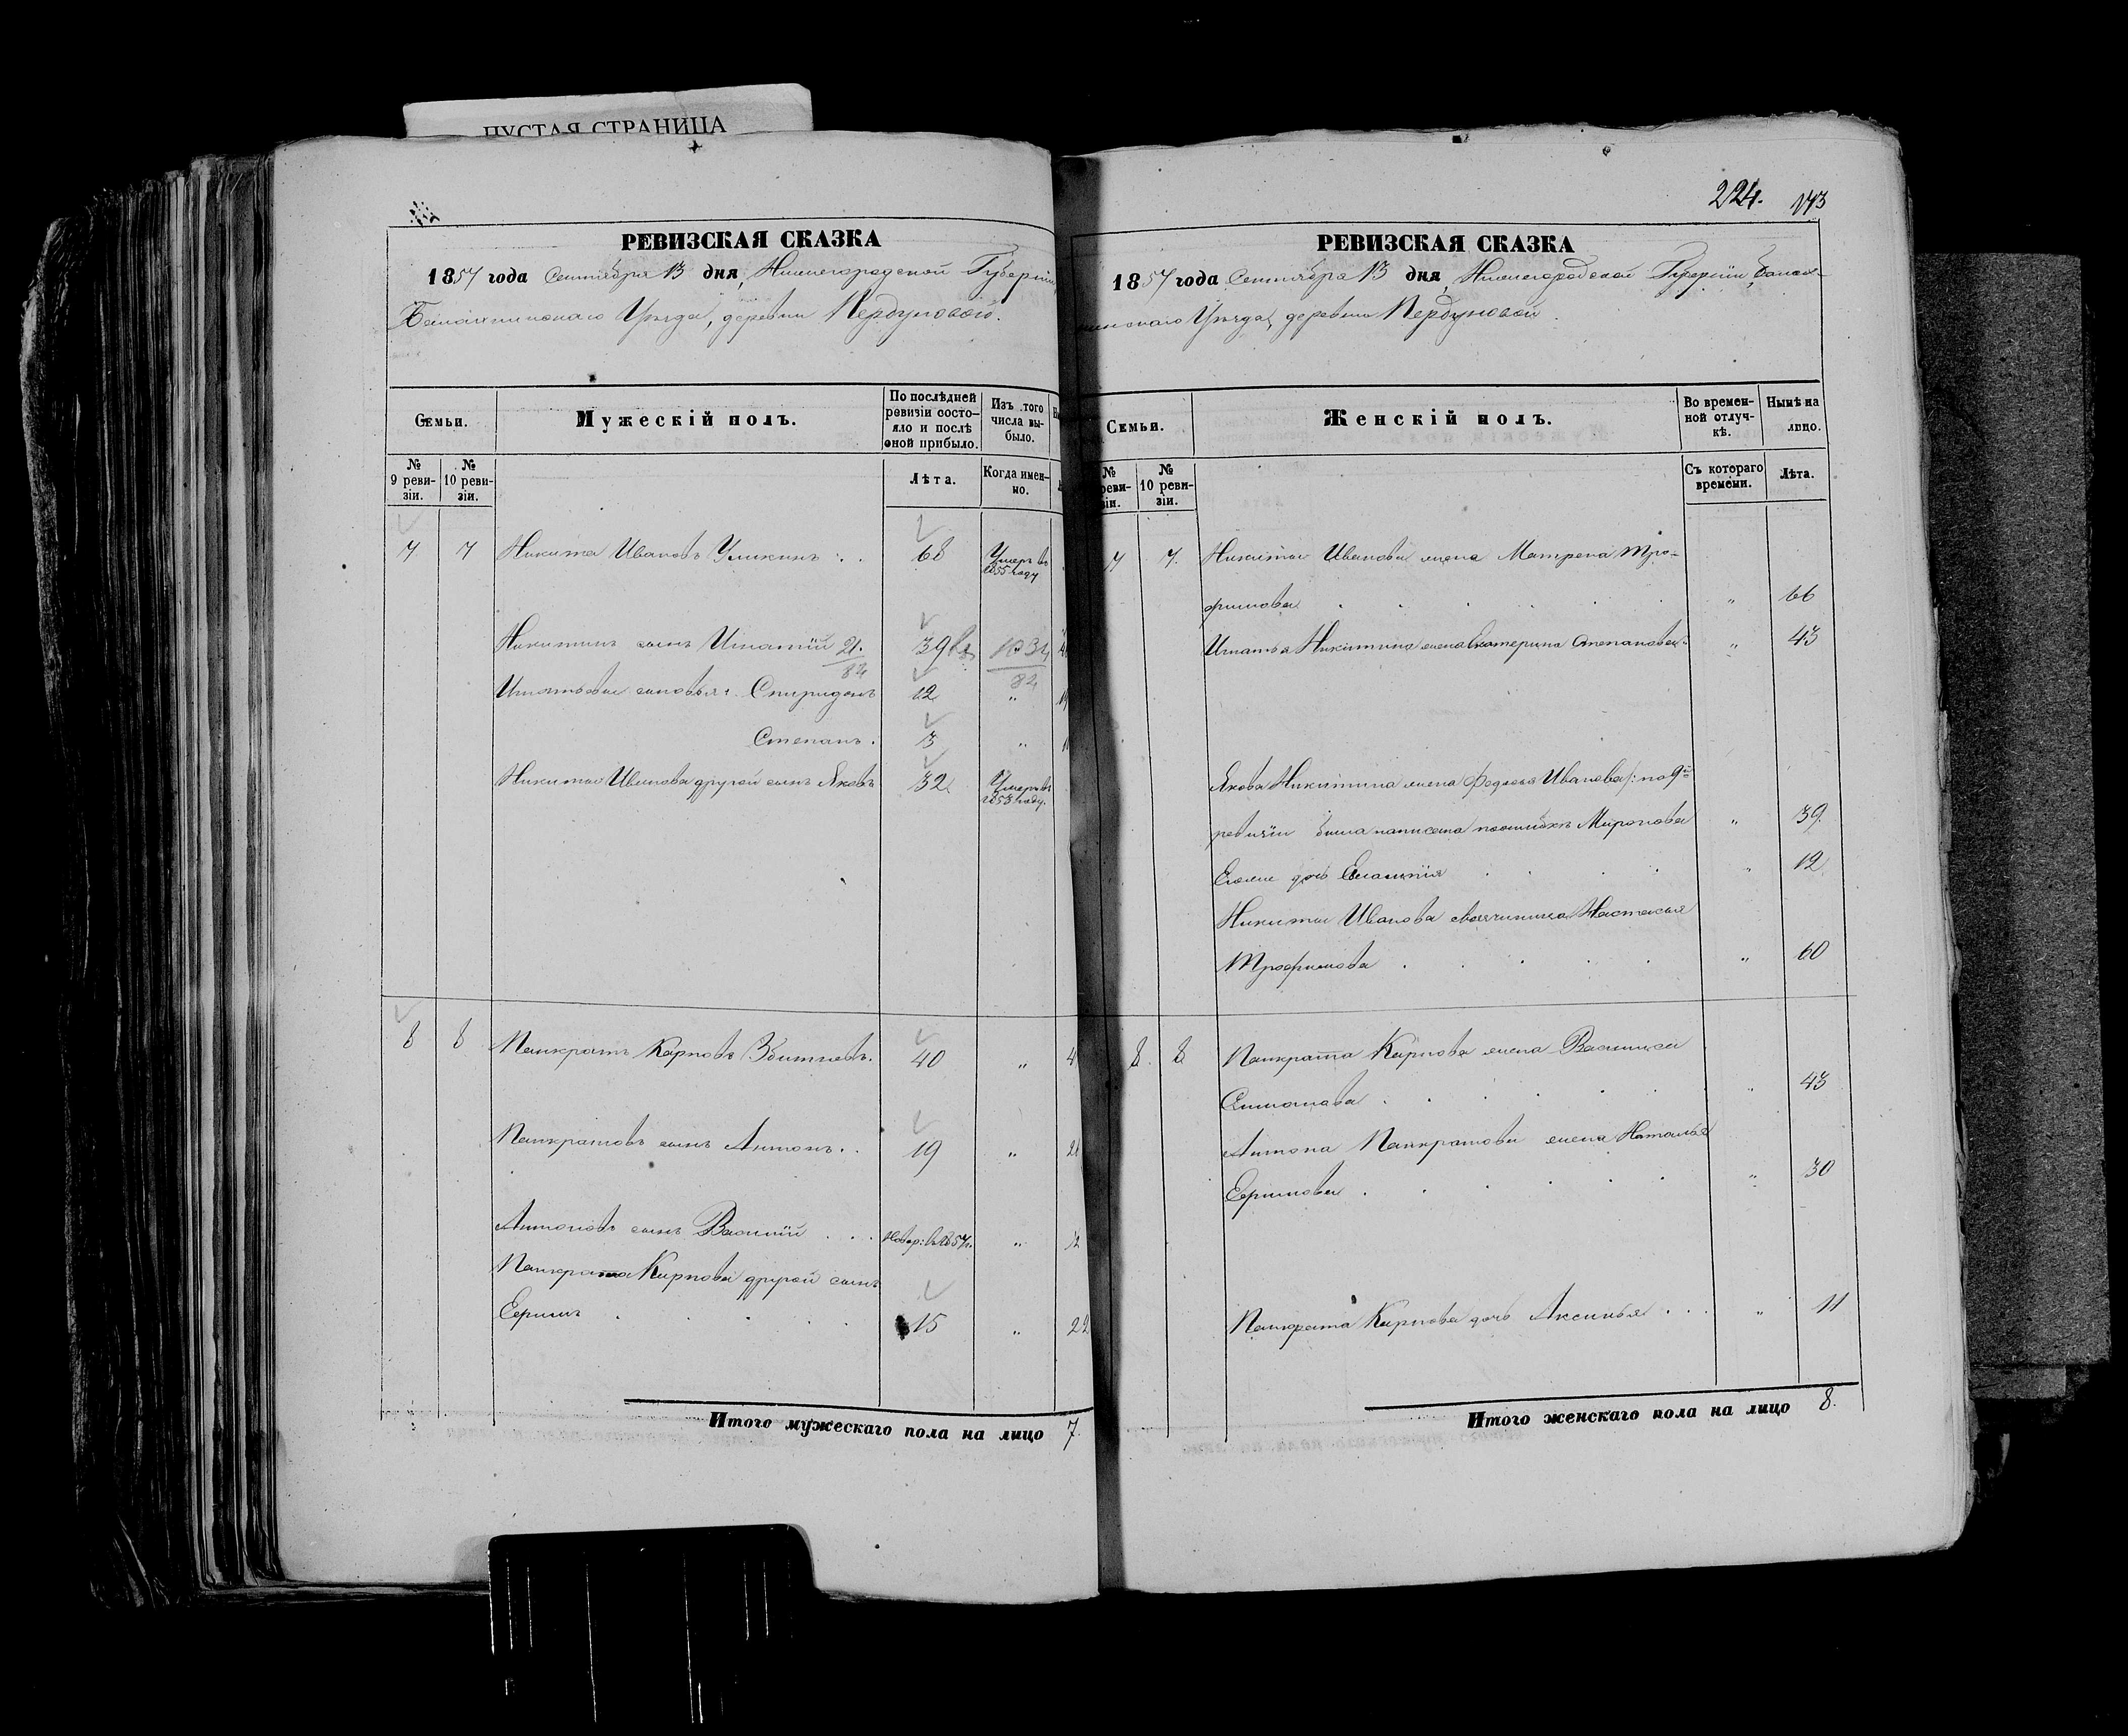 ПУСТАЯ СТРАНИЦА
РЕВИЗСКАЯ СКАЗКА
1857 года Сентября 13 дня, Нижегородской Губерніи,
Балахнинскаго Уѣзда, деревни Пердуновой.
Семьи.
Мужескій полъ.
По послѣдней ревизіи состояло и послѣ оной прибыло.
Изъ того числа выбыло.
№ 9 ревизіи.
№ 10 ревизіи.
Лѣта.
Когда именно.
7 7 Никита Ивановъ 68 Умеръ въ 1855 году
Никитинъ сынъ Игнатій 39
Игнатьевы сыновья: Спиридонъ 12 "
Степанъ. 3 "
Никиты Иванова другой сынъ Яковъ 32 Умеръ въ 1853 году.
8 8 Панкратъ Карповъ Збитневъ. 40 "
Панкратовъ сынъ Антонъ. . 19 "
Антоновъ сынъ Василий . . . "
Панкрата Карпова другой сынъ
Ефимъ 15 " 22
Итого мужескаго пола на лицо 7.
224. 173
РЕВИЗСКАЯ СКАЗКА
1857 года Сентября 13 дня, Нижегородской Губерніи, Балах-
нинскаго Уѣзда, деревни Пердуновой.
Семьи.
Женскій полъ.
Во временной отлучкѣ.
Нынѣ на лицо.
№ ревизіи.
№ 10 ревизіи.
Съ котораго времени.
Лѣта.
7 7. Никиты Иванова жена Матрена Тро-
фимова " 66
Игнатья Никитина жена Екатерина Степанова " 43
Якова Никитина жена Федосья Иванова /: по 9й
ревизіи была написана по ошибкѣ Миронова " 39.
Его же дочь " 12
Никиты Иванова свояченица Настасья
Трофимова " 60
8. 8 Панкрата Карпова жена Василиса
" 43
Антона Панкратова жена Наталья
Ефимова " 30
Панкрата Карпова дочь Аксинья . . . " 11
Итого женскаго пола на лицо 8.